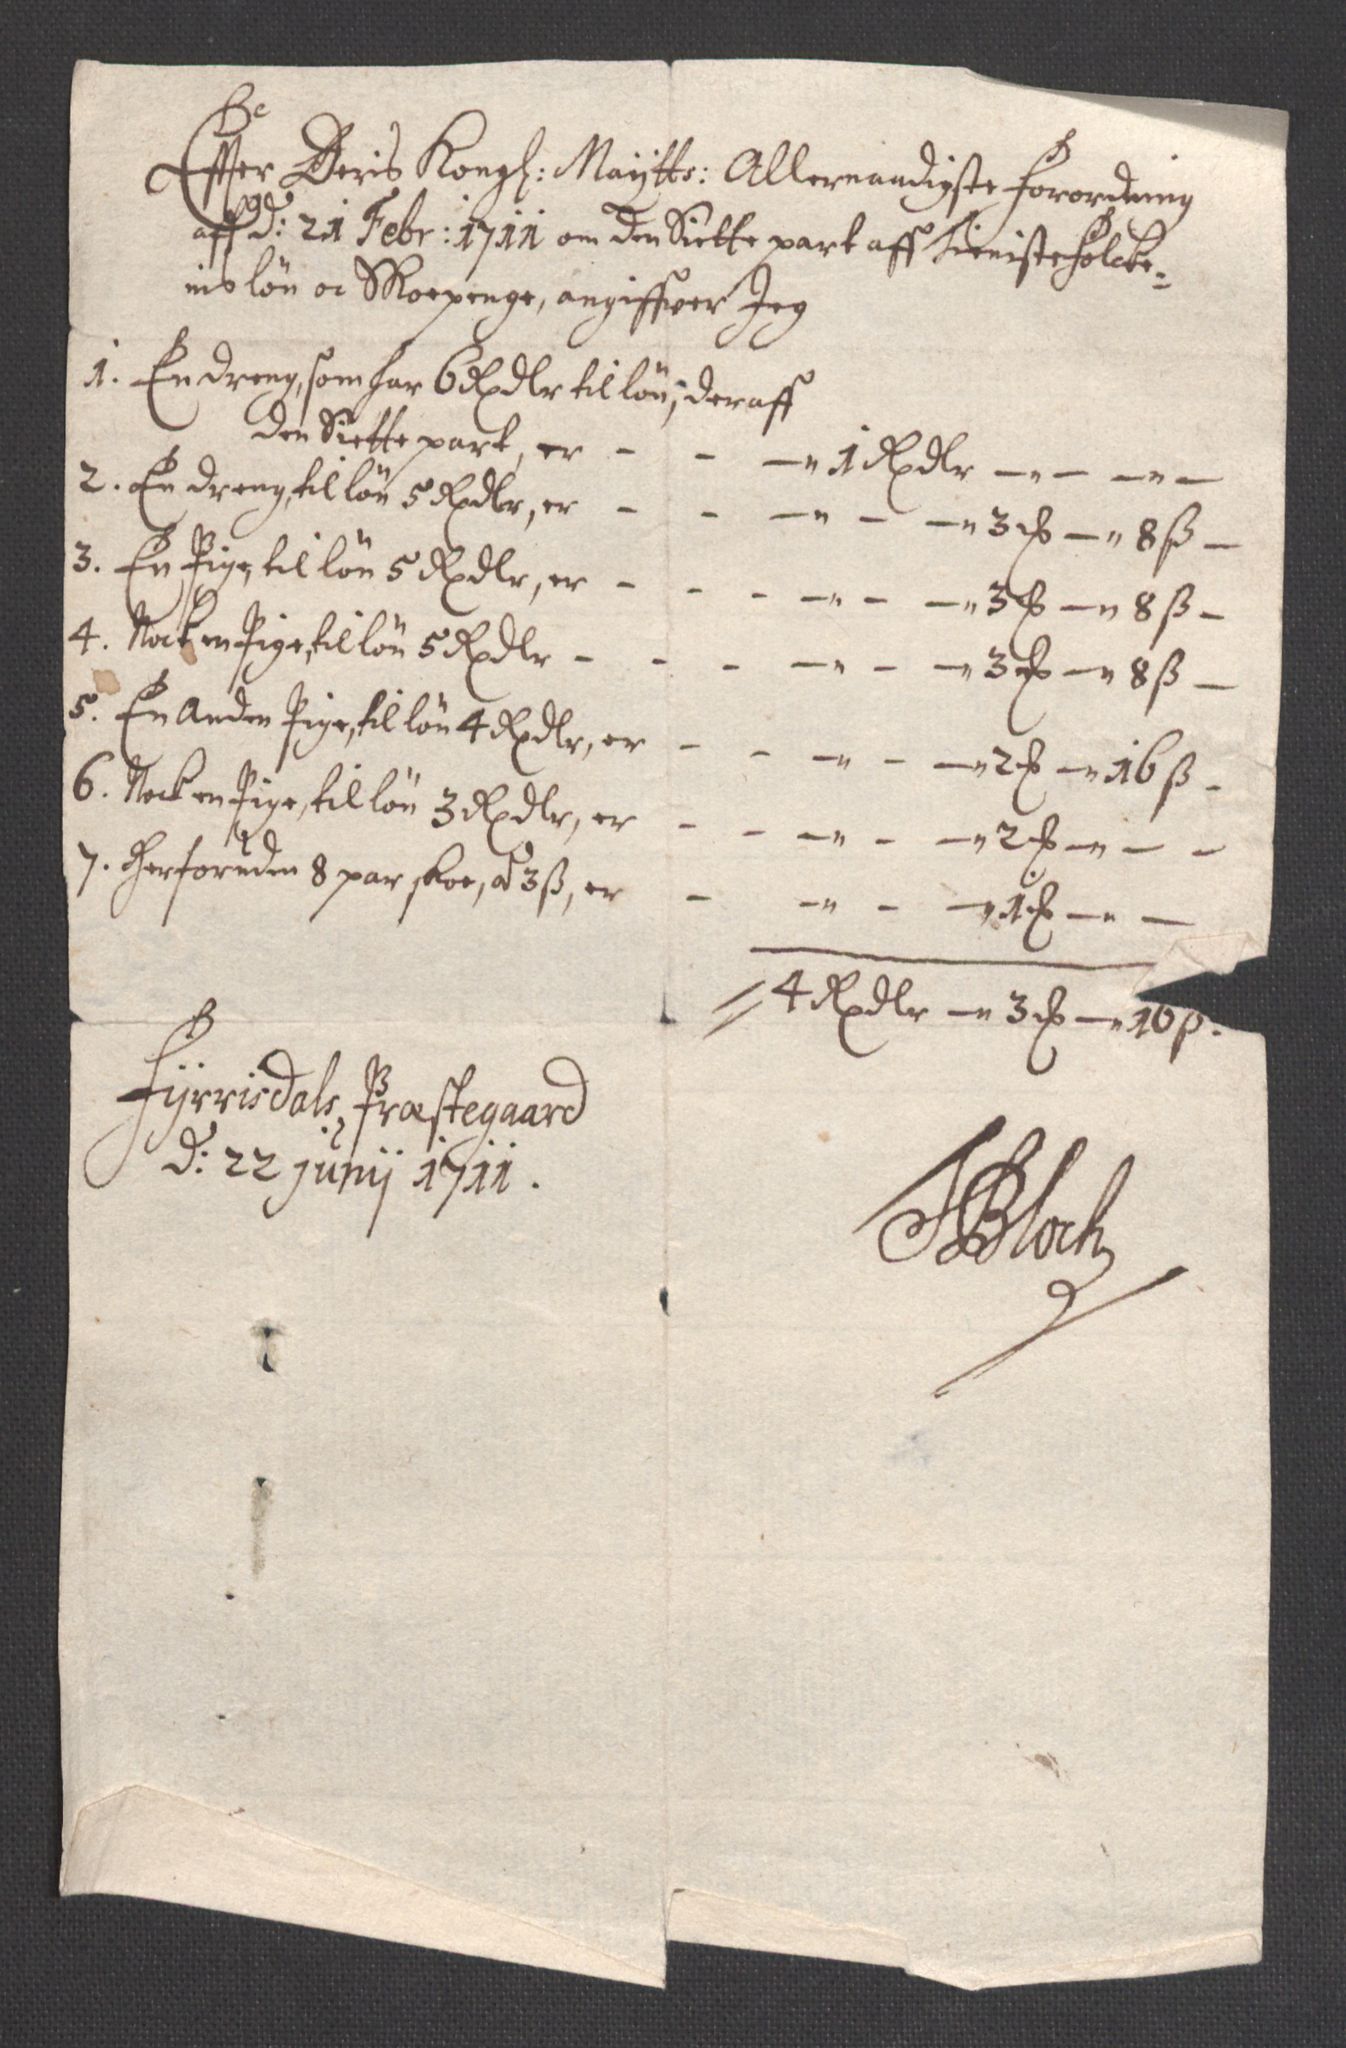 Effter Deris Kongl: Maÿtts: Allernaadigste forordning
aff d: 21 Febr: 1711 om den Siette part aff tieniste folcke=
nis lön oc Skoepenge, angiffver Jeg
1. En dreng, som har 6 Rxdlr til lön, deraff
den Siette part, er - - —" 1 Rxdlr —"— —"—
2. En dreng, til lön 5 Rxdlr, er - - —" - —" 3 ₻ —" 8 ß —
3. En Pige, til lön 5 Rxdlr, er - - - —" - —" 3 ₻ —" 8 ß -
4. Nock en Pige, til lön 5 Rxdlr - - - —" - —" 3 ₻ —" 8 ß —
5. En Anden Pige, til lön 4 Rxdlr, er - - —" - —" 2 ₻ —" 16 ß -
6. Nock en Pige, til lön 3 Rxdlr, er - - —" - —" 2 ₻ —" — -
7. Herforuden 8 par skoe, a 3 ß, er - —" - —" 1 ₻ —" —
// 4 Rxdlr —" 3 ₻ —" 16 ß.
Fÿrrisdals Præstegaard
d: 22 junij 1711.
HBloch